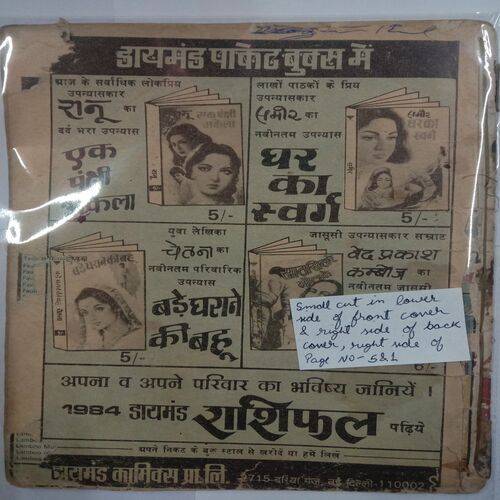 डायमंड पाकेट बुक्स में
आज के सर्वाधिक लोकप्रिय
उपन्यासकार
रानू का
दर्द भरा उपन्यास
एक
पंछी
अकेला
रानू एक पंछी
अकेला
5/-
लाखों पाठकों के प्रिय
उपन्यासकार
समीर का
नवीनतम उपन्यास
घर
का
स्वर्ग
समीर
घर का
स्वर्ग
5/-
युवा लेखिका
चेतना का
नवीनतम पारिवारिक
उपन्यास
बड़े घराने
की बहू
बड़े घराने की बहू
5/-
जासूसी उपन्यासकार सम्राट
वेद प्रकाश
काम्बोज का
नवीनतम जासूसी
Small cut in lower
side of front cover
& right side of back
cover, right side of
Page No-5&1
अपना व अपने परिवार का भविष्य जानिये ।
1984 डायमंड राशिफल पढ़िये
अपने निकट के बुक स्टाल से खरीदें या हमें लिखें
डायमंड कामिक्स प्रा. लि. 2715 दरिया गंज, नई दिल्ली-110002